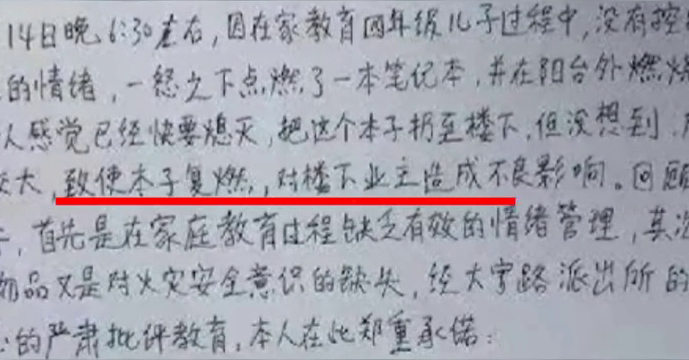 14日晚6:30左右,因在家教育四年级儿子过程中,没有控
的情绪,一怒之下点燃了一本笔记本,并在阳台外燃烧
人感觉已经快要熄灭,把这个本子扔至楼下,但没想到,
大,致使本子复燃,对楼下业主造成不良影响。回顾
首先是在家庭教育过程缺乏有效的情绪管理,其次
物品又是对火灾安全意识的缺失,经大宇路派出所的
的严肃批评教育,本人在此郑重承诺: